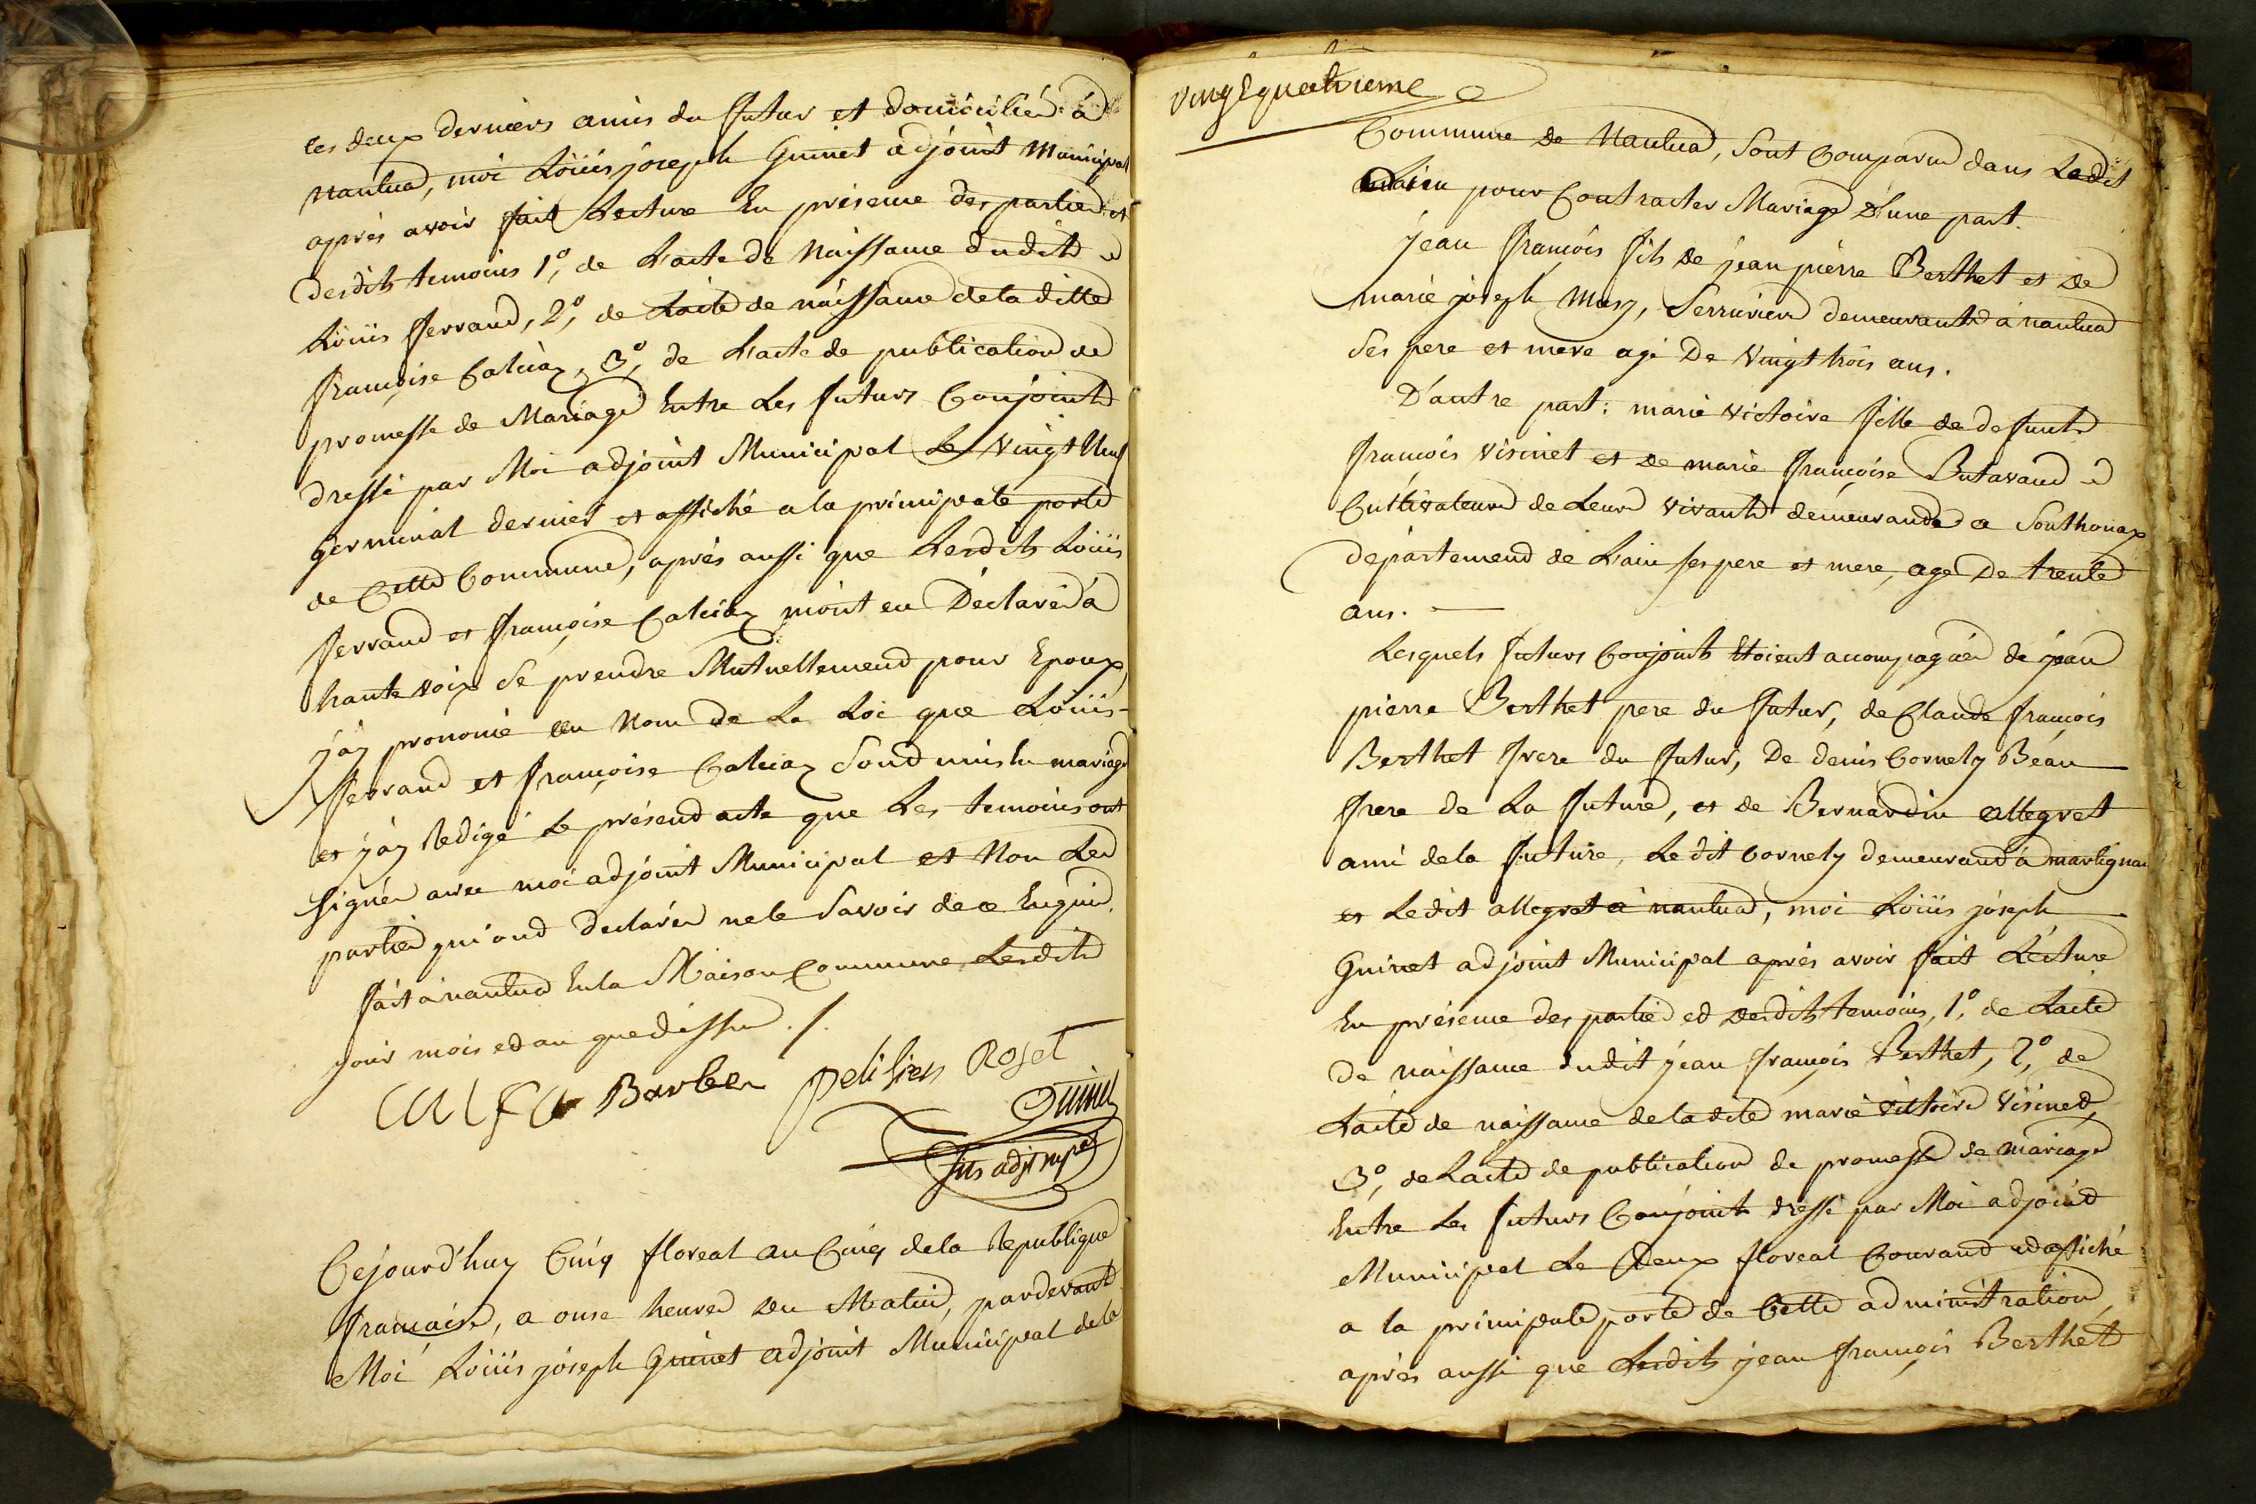 les deux derniers amis du futur et domiciliés à
nantua, moi Loüis joseph Guinet adjoint Municipal
après avoir fait Lecture En présence des parties et
desdits temoins 1°, de L'acte de Naissance dudit
Loüis ferrand, 2°, de L'acte de naissance de la ditte
françoise Calviaz, 3°, de L'acte de publication de
promesse de Mariage Entre Les futurs Conjoints
dressé par Moi adjoint Municipal Le Vingt Neuf
germinal dernier et affiché a la principale porte
de Cette Commune, après aussi que Lesdits Loüis
ferrand et françoise Calviaz m'ont eu Déclaré à
haute voix Se prendre Mutuellement pour Epoux,
j'ay prononcé au Nom de La Loi que Loüis
ferrand et françoise Calviaz Sond unis En mariage
et j'ay Redigé Le présend acte que Les temoins ont
signés avec moi adjoint Municipal et Non Les
parties qui ond declarés ne le Savoir de ce Enquis.
fait à nantua En la Maison Commune Lesdits
jour mois ed an que dessus ./.
Barlen pelissier Roset
Guinet
fils adjt mpal
Cejourd'huy Cinq floreal an Cinq de la Republique
francaise, a onse heures Du Matin, pardevant
Moi Loüis joseph Guinet adjoint Municipal de la
vingtquatrieme
Commune de Nantua, Sont Comparus dans Ledit
Lieu pour Contracter Mariage D'une part.
jean françois fils de jean pierre Berthet et de
marie joseph Mary, Serrurier demeurants à nantua
Ses pere et mere agé De Vingt trois ans.
D'autre part: marie victoire fille de defunts
françois visinet et de marie françoise Butavand
Cultivateurs de Leurs vivants demeurands a Sonthonax
département de L'ain ses pere et mere, age De trente
ans.
Lesquels futurs Conjoints Etoient accompagnés de jean
pierre Berthet pere du futur, de Claude françois
Berthet frere du futur, De denis Cornely Béau
frere de La future, et de Bernardin allegret
ami de la future, Le dit Cornely demeurand à martignat
et Le dit allegret à nantua, moi Loüis joseph
Guinet adjoint Municipal après avoir fait Lécture
En présence des parties ed desdits temoins, 1°, de L'acte
de naissance dudit jean françois Berthet, 2°, de
L'acte de naissance de la dite marie victoire Visined,
3°, de L'acte de publication de promesse de mariage
Entre Les futurs Conjoints dressé par Moi adjoind
Municipal Le Deux floreal Courand ed affiché
a la principale porte de Cette administration,
après aussi que Lesdits jean françois Berthet